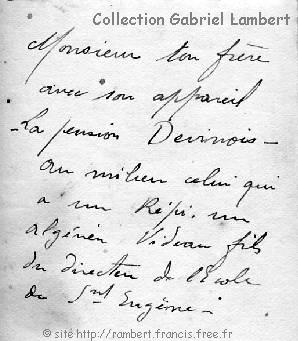 Collection Gabriel Lambert
Monsieur ton frère
avec son appareil
- La pension Devinois -
au milieu celui qui
a un Képi, un
algérien Videau fils
du directeur de l'Ecole
de Snt Eugène -
© site http://rambert.francis.free.fr